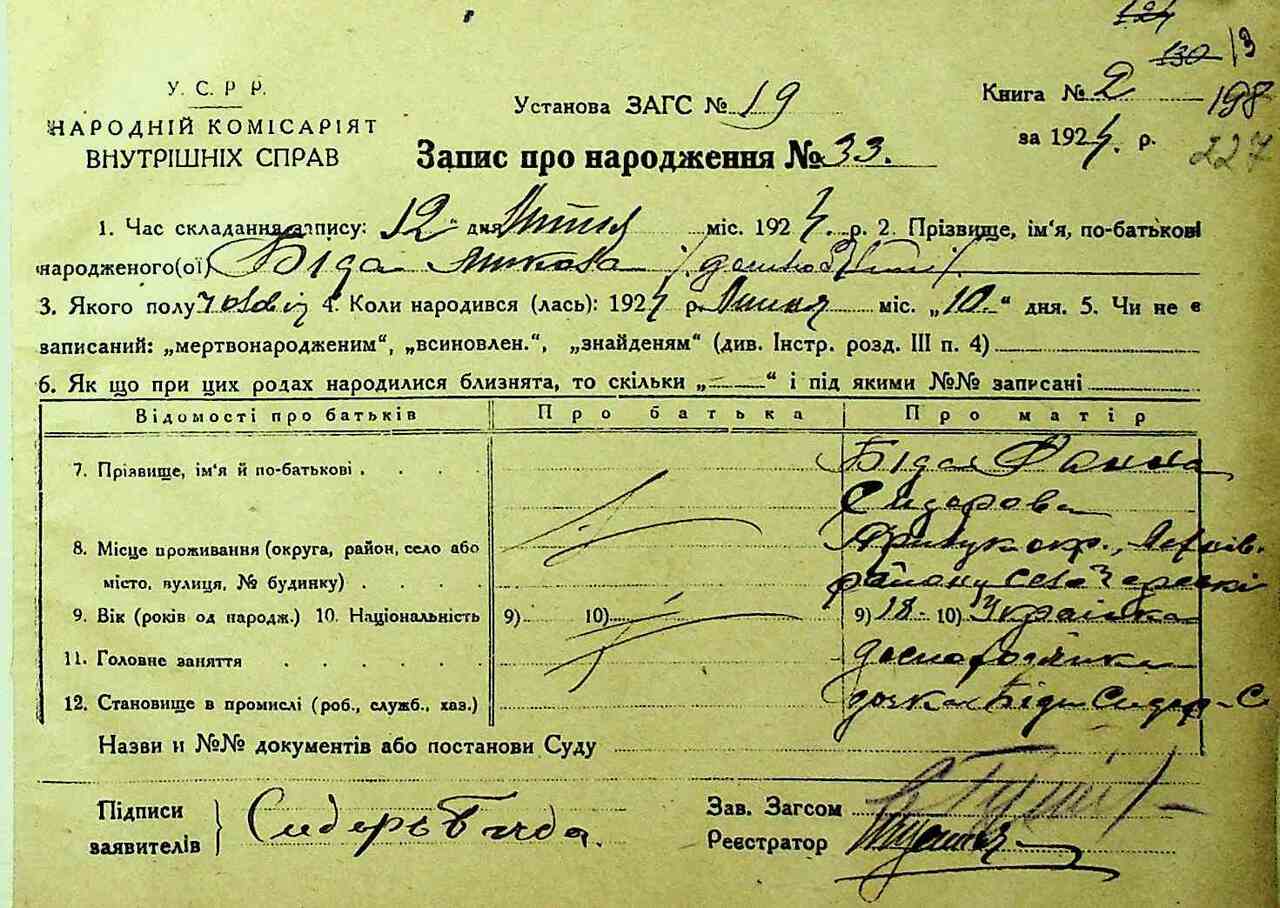 У. С. Р Р.
НАРОДНІЙ КОМІСАРІЯТ
ВНУТРІШНІХ СПРАВ
Установа ЗАГС № 19
Запис про народження № 33.
121
130 13
Книга № 2 198
за 1924 р. 227
1. Час складання запису: 12 дня міс. 1924. р. 2. Прізвище, ім'я, по-батькові
народженого(ої) Біда Микола
3. Якого полу чоловіч 4. Коли народився (лась): 1924 р. міс. „10.“ дня. 5. Чи не є
записаний: „мертвонародженим“, „всиновлен.“, „знайденям“ (див. Інстр. розд. III п. 4)
6. Як що при цих родах народилися близнята, то скільки „—“ і під якими №№ записані
Відомості про батьків Про батька Про матір
7. Прізвище, ім'я й по-батькові . . . . Біда Ганна
Сидорова
8. Місце проживання (округа, район, село або Прилук окр.,
місто, вулиця, № будинку) . . . . району села
9. Вік (років од народж.) 10. Національність 9) 10) 9) 18 10) Українка
11. Головне заняття . . . . .
12. Становище в промислі (роб., служб., хаз.) дочка Біди Сидор
Назви и №№ документів або постанови Суду
Підписи
заявителів } Сидеръ Бида.
Зав. Загсом
Реєстратор